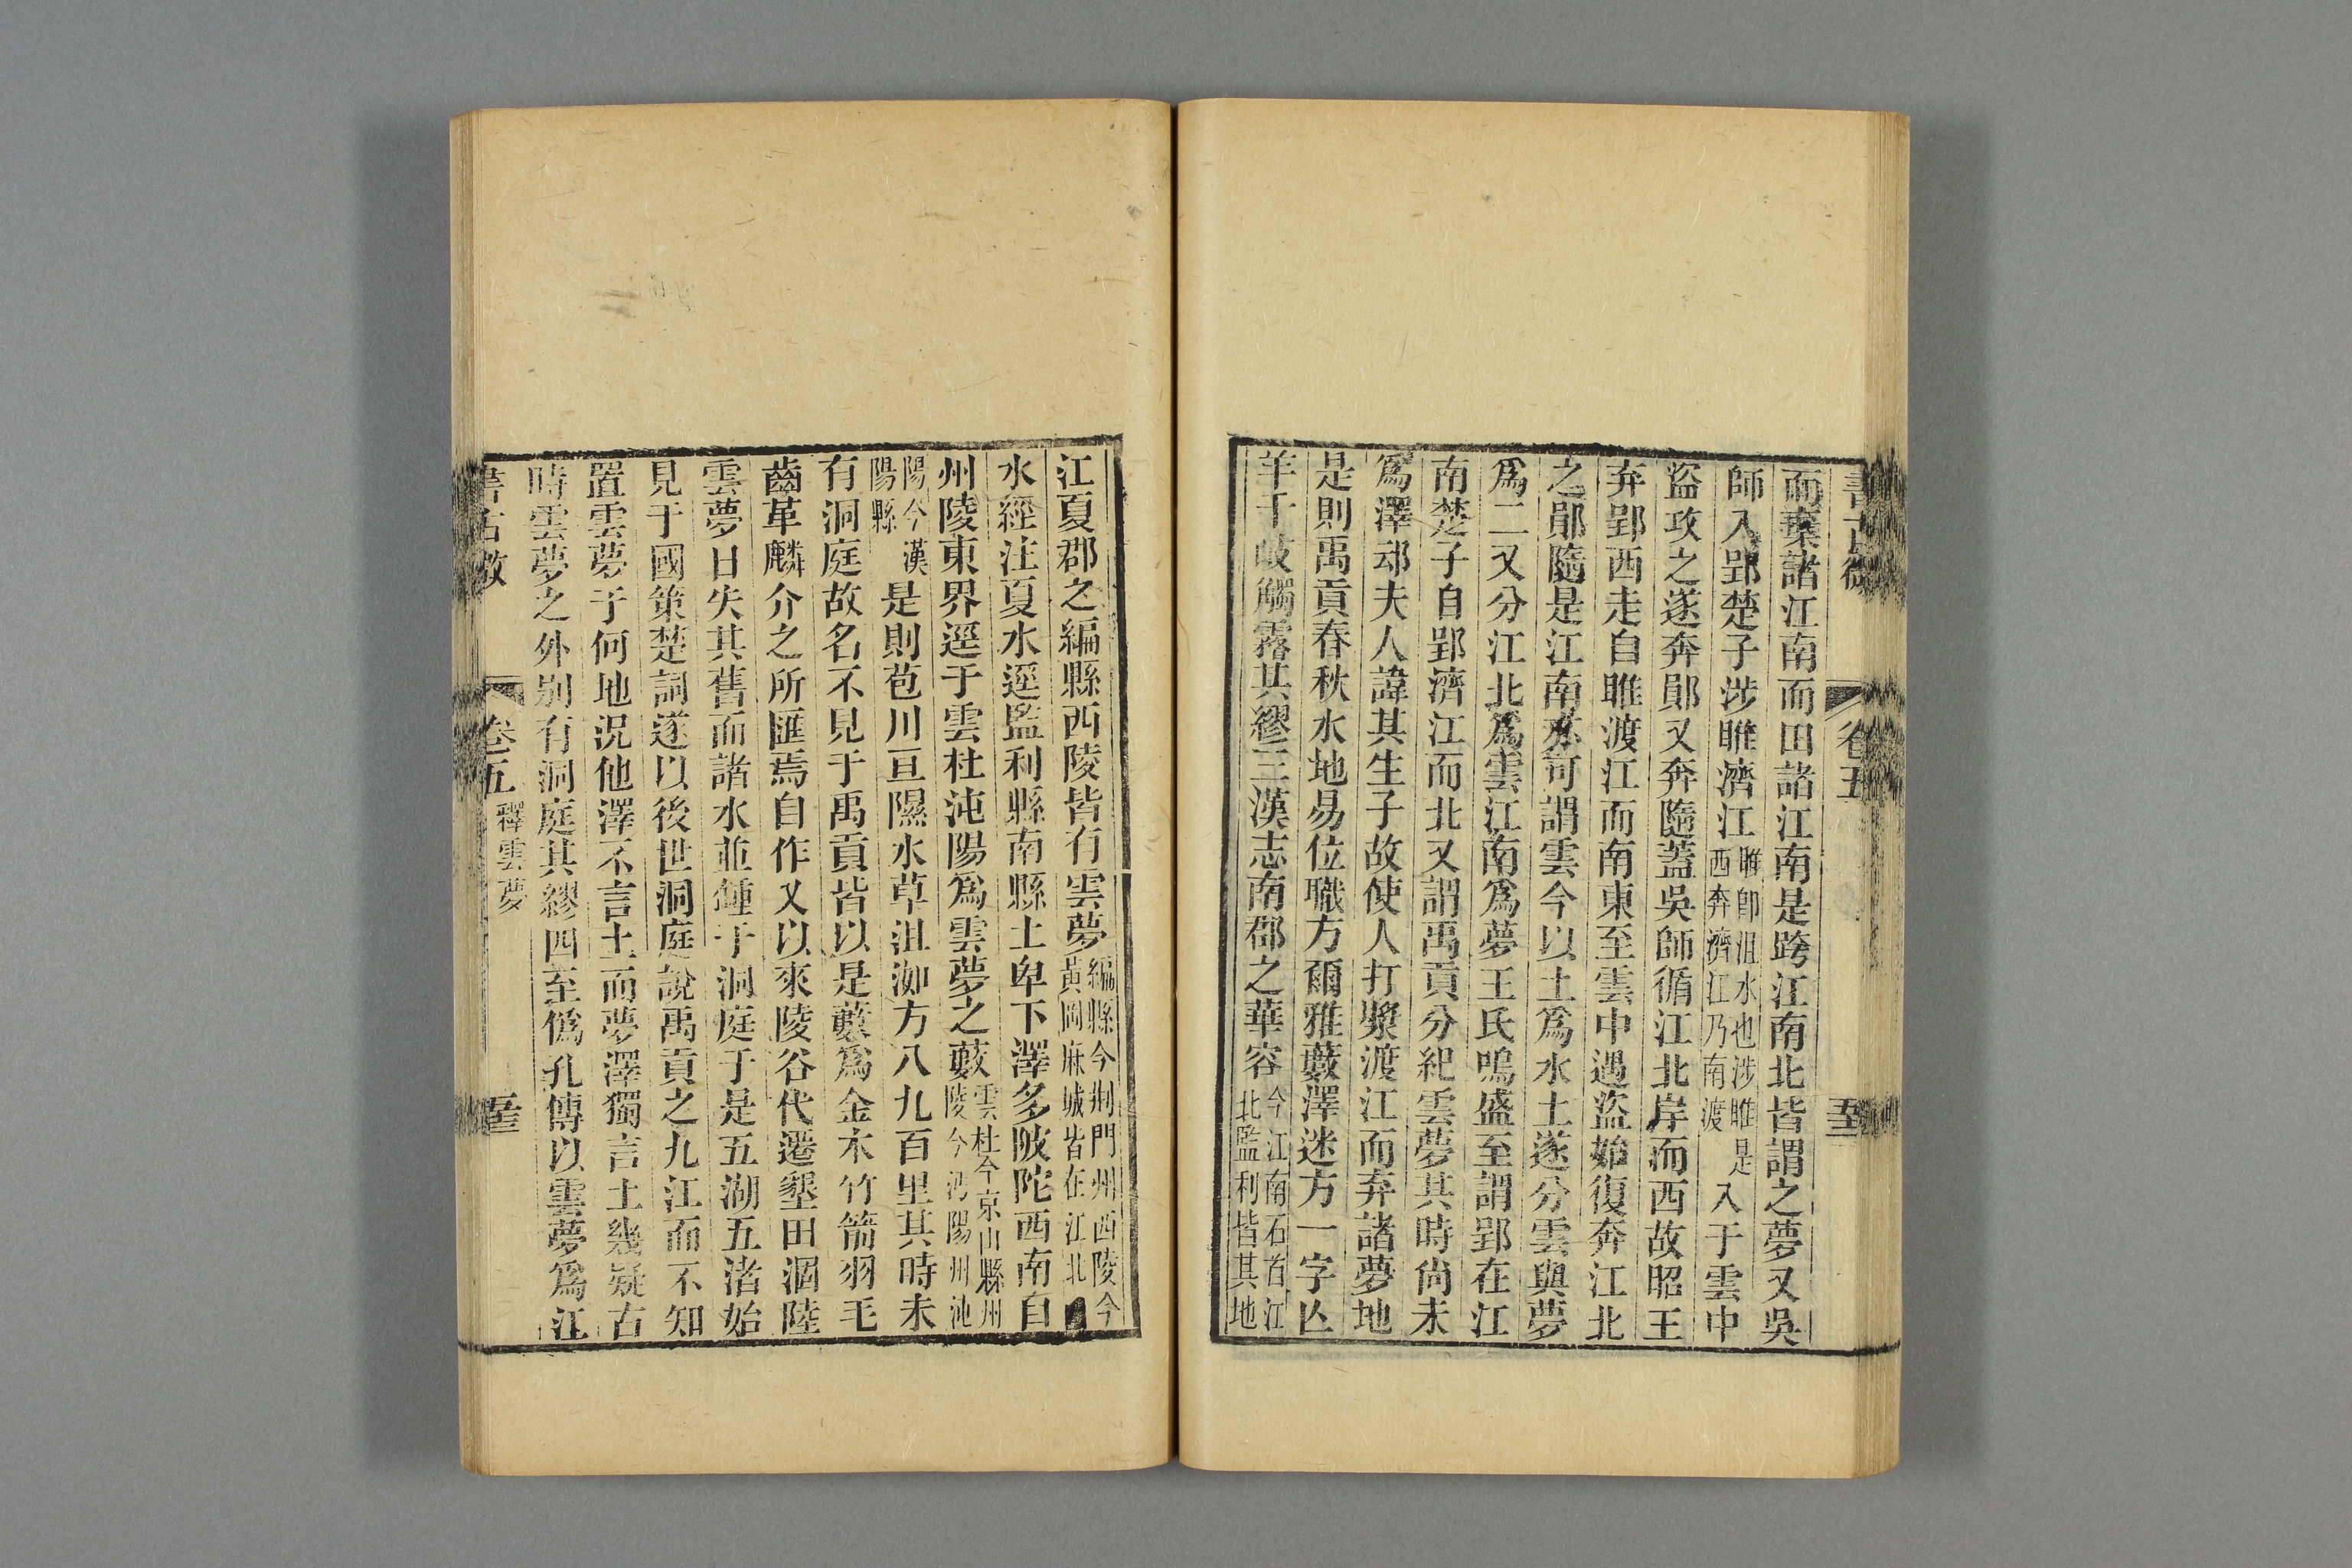 書古微
卷五
而棄諸江南而田諸江南是跨江南北皆謂之夢又吳
師入郢楚子涉睢濟江睢卽沮水也涉睢西奔濟江乃南渡是入于雲中
盜攻之遂奔鄖又奔隨蓋吳師循江北岸而西故昭王
弃郢西走自睢渡江而南東至雲中遇盜始復奔江北
之鄖隨是江南亦可謂雲今以土爲水土遂分雲與夢
爲二又分江北爲雲江南爲夢王氏鳴盛至謂郢在江
南楚子自郢濟江而北又謂禹貢分紀雲夢其時尙未
爲澤䢵夫人諱其生子故使人打槳渡江而弃諸夢地
是則禹貢春秋水地易位職方爾雅藪澤迷方一字亾
羊千岐觸霧其繆三漢志南郡之華容今江南石首江北監利皆其地
江夏郡之編縣西陵皆有雲夢編縣今荆門州西陵今黃岡麻城皆在江北
水經注夏水逕監利縣南縣土卑下澤多陂陀西南自
州陵東界逕于雲杜沌陽爲雲夢之藪雲杜今京山縣州陵今沔陽州沌
陽今漢陽縣是則苞川亘隰水草沮洳方八九百里其時未
有洞庭故名不見于禹貢皆以是藪爲金木竹箭羽毛
齒革麟介之所匯焉自作乂以來陵谷代遷墾田涸陸
雲夢日失其舊而諸水並鍾于洞庭于是五湖五渚始
見于國策楚詞遂以後世洞庭說禹貢之九江而不知
置雲夢于何地況他澤不言土而夢澤獨言土幾疑古
時雲夢之外別有洞庭其繆四至僞孔傳以雲夢爲江
書古微
卷五
釋雲夢